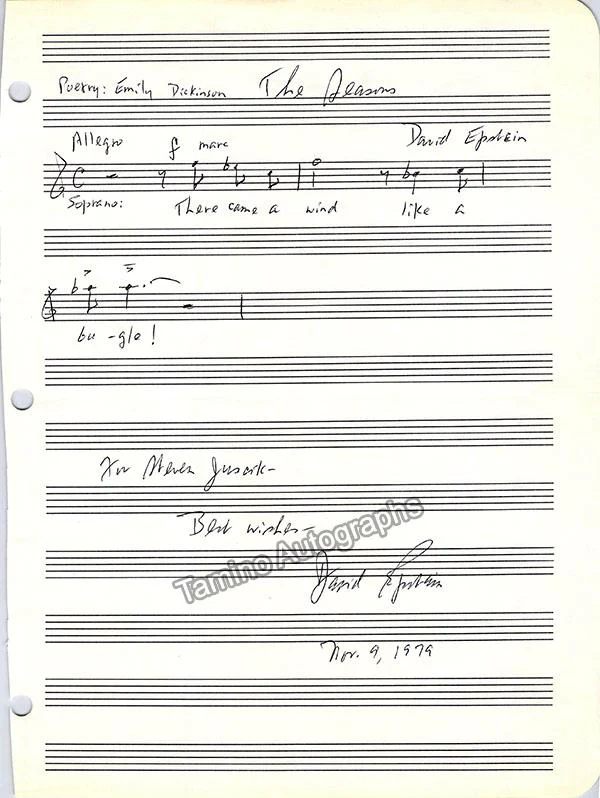 Poetry: Emily Dickinson The Seasons
Allegro f marc David Epstein
Soprano: There came a wind like a
bu-gle!
For Steven
Best wishes-
David Epstein
Nov. 9, 1979
Tamino Autographs